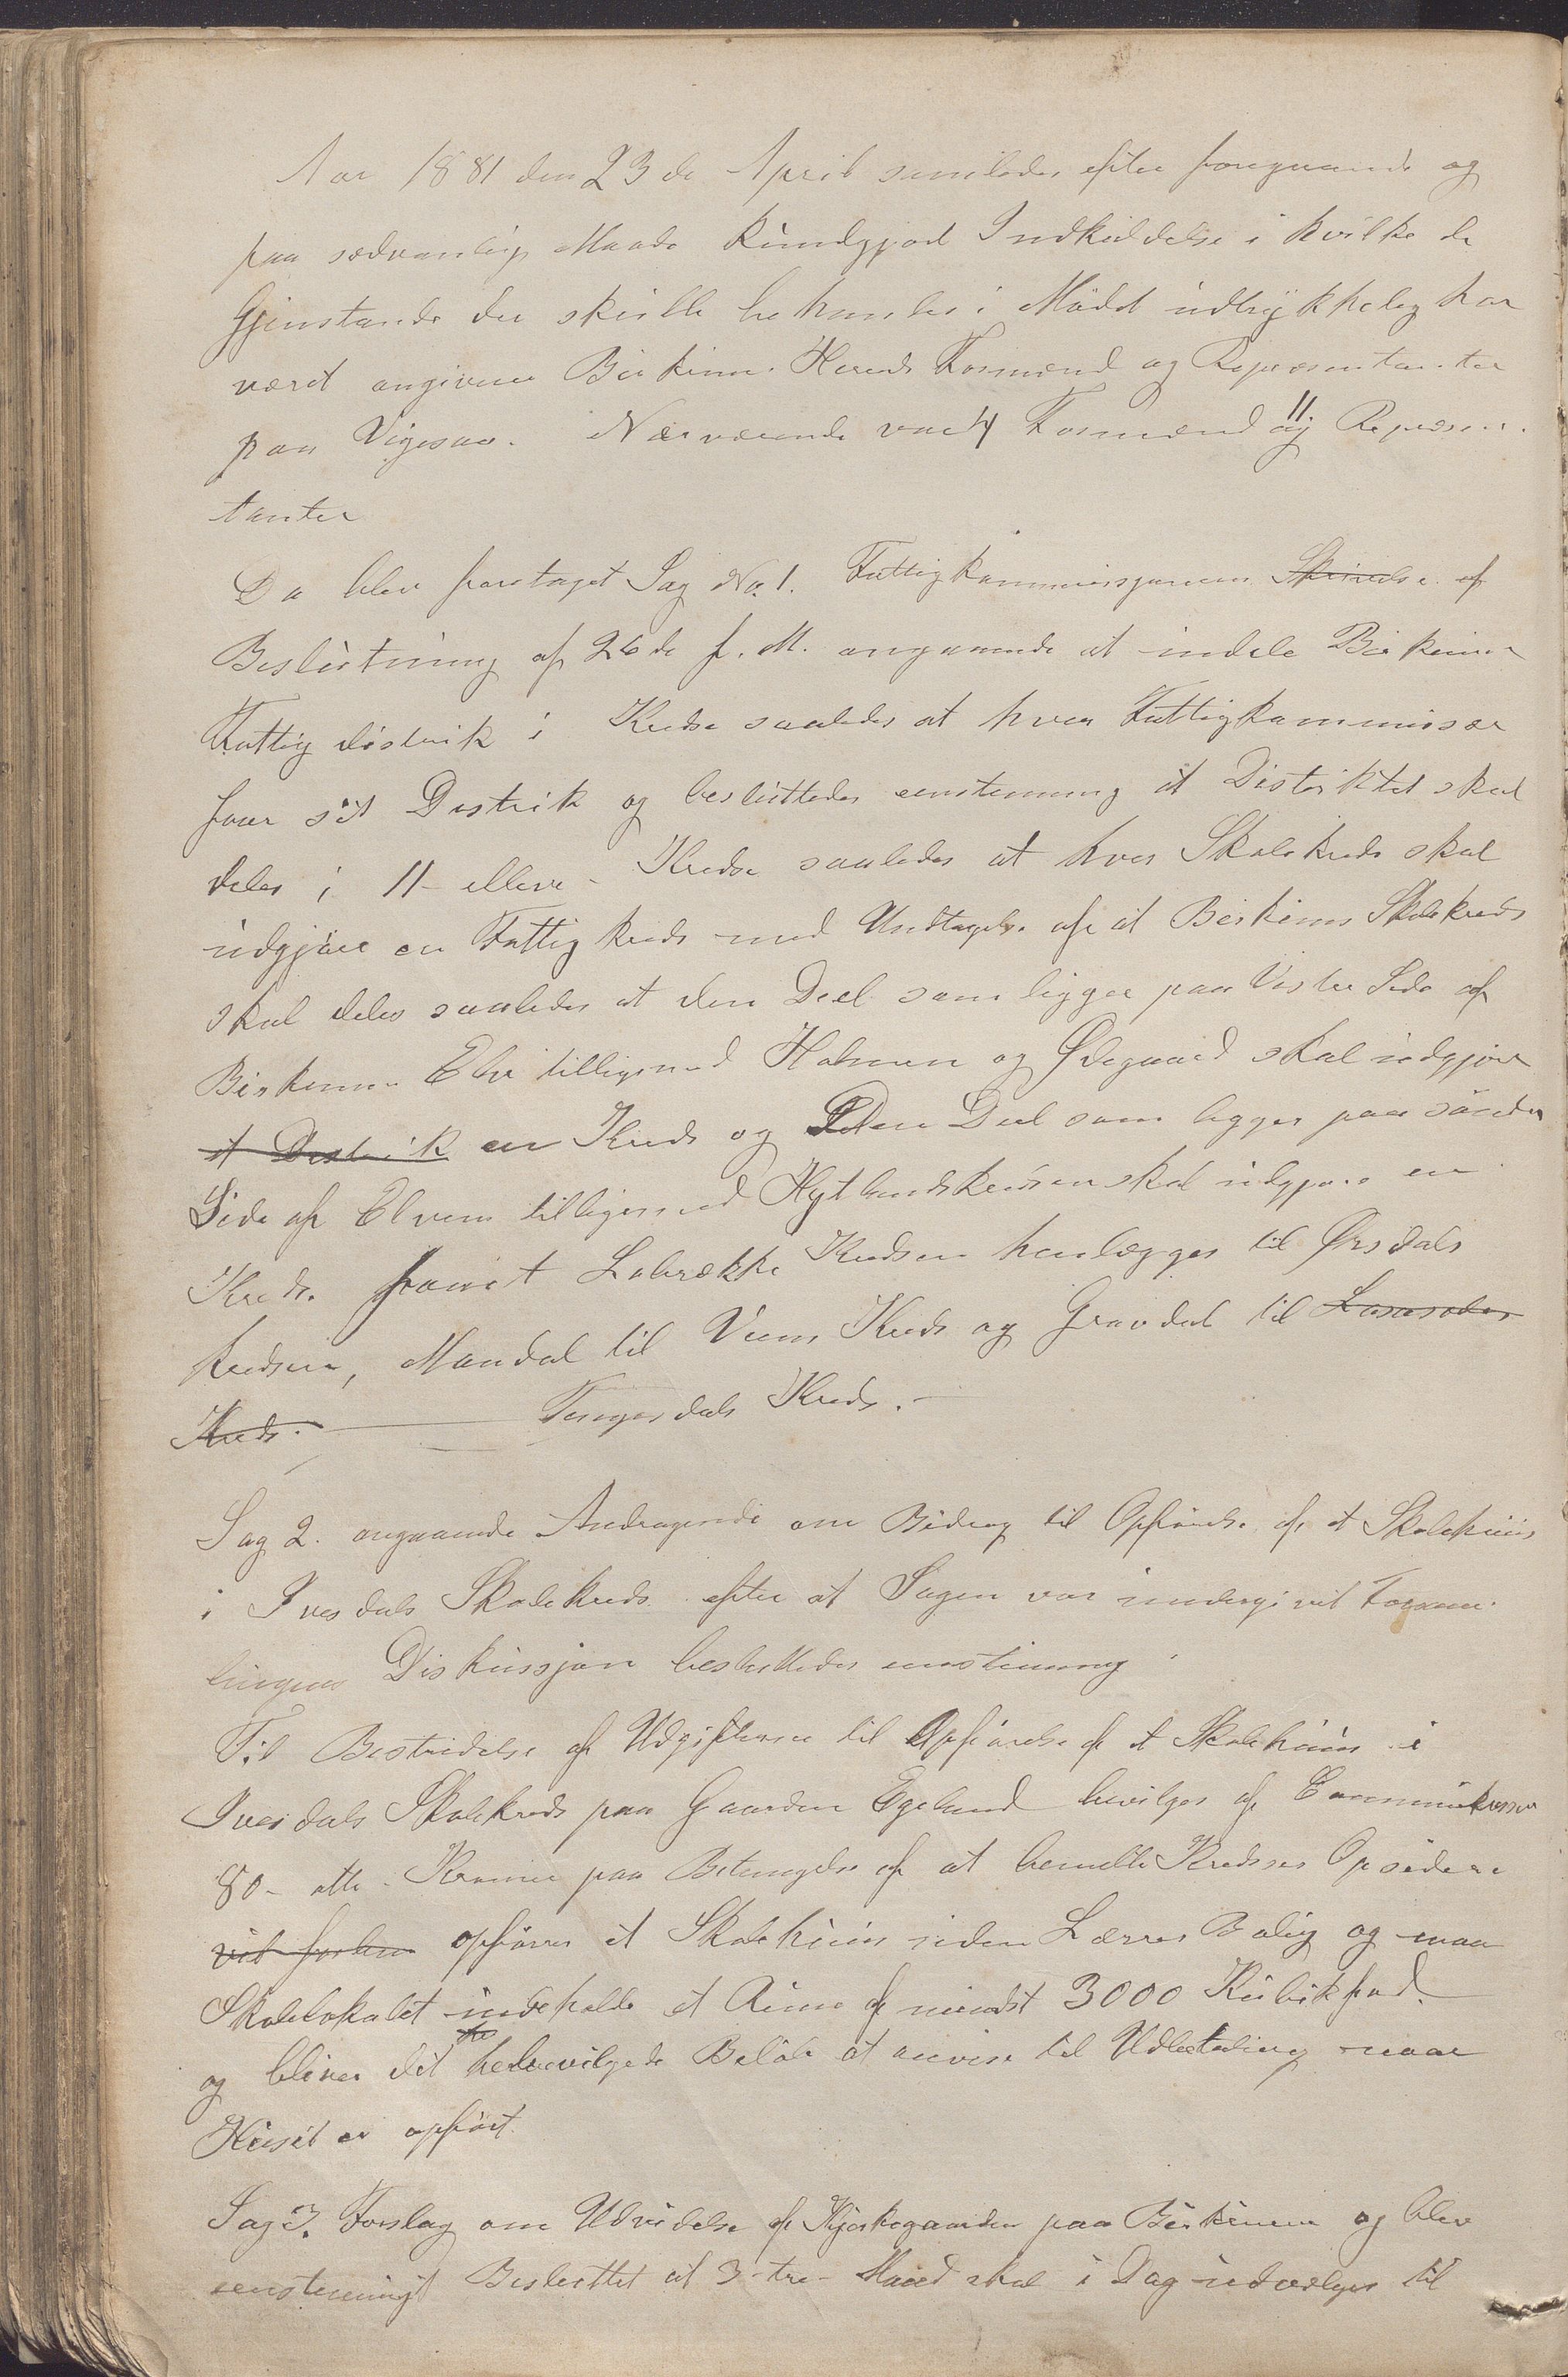 Aar 1881 den 23de April samledes efter foregaaende og
paa sædvanlig Maade kundgjod Indkaldelse i hvilke de
Gjenstande der skulle behandles i Mødet udtrykkelig har
været angivne Birkrem Hereds Formænd og Repræsentanter
paa Vigesaa. Nærværende var 4 Formænd og 11 Repræsen-
tanter
Da blev foretaget Sag No. 1. Fattigkommissjonens Skrivelse af
Beslutning af 26de f. M. angaaende at indele Birkrem
Fattig distrik i Kredse saaledes at hver Fattigkommissær
faar sit Distrik og besluttedes eenstemmig at Distriktet skal
deles i 11 - elleve - Kredse saaledes at hver Skolekreds skal
udgjøre en Fattig kreds med Undtagelse af at Birkrem Skolekreds
skal deles saaledes at den Deel som ligger paa Vestre Side af
Birkrem Elv tilligemed Holmen og Ødegaard skal udgjøre
et Distrik en Kreds og Den Deel som ligger paa søndre
Side af Elven tilligemed Hytlandskredsen skal udgjøre en
Kreds. samt Lobrække Kredsen henlægges til Ørsdals
kredsen, Mandal til Veens Kreds og Gravdal til
Kreds. Tengesdals Kreds.
Sag 2. angaaende Andragende om Bidrag til Opførelse af et Skolehuus
i Ivesdals Skolekreds efter at Sagen var undergivet Forsam-
lingens Diskussjon besluttedes eenstemmig
Til Bestridelse af Udgifterne til Opførelse af et Skolehuus i
Ivesdals Skolekreds paa Gaarden Egeland bevilges af Communekassen
80 - otti - Kroner paa Betingelse af at bemelte Kredses Opsidere
opfører et Skolehuus uden Lærer Bolig og maa
Skolelokalet indeholde et Rum af mindst 3000 Kubikfod.
og bliver dit bevilgede Beløb at anvise til Udbetaling naar
Huset er opført.
Sag 3. Forslag om Udvidelse af Kjerkegaarden paa Birkrem og blev
eenstemmigt Besluttet at 3 - tre - Mænd skal i Dag udvælges til